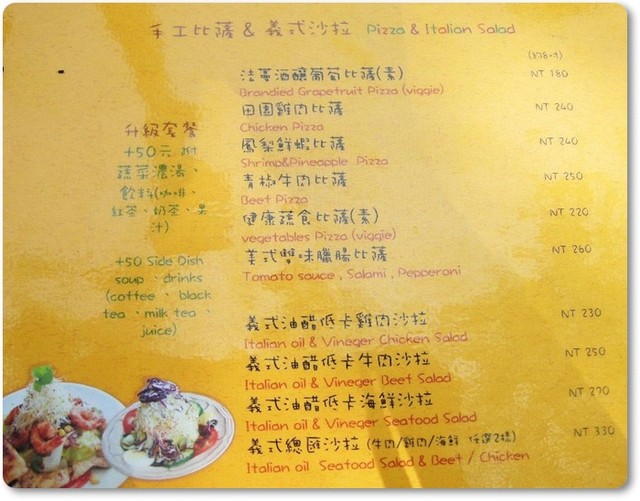 手工比薩 & 義式沙拉 Pizza & Italian Salad
法蘭酒釀葡萄比薩(素) NT 180
Brandied Grapefruit Pizza (viggie)
田園雞肉比薩 NT 240
Chicken Pizza
鳳梨鮮蝦比薩 NT 240
Shrimp&Pineapple Pizza
青椒牛肉比薩 NT 250
Beet Pizza
健康蔬食比薩(素) NT 220
vegetables Pizza (viggie)
美式雙味臘腸比薩 NT 260
Tomato sauce , Salami , Pepperoni
升級套餐
+50元 附
蔬菜濃湯、
飲料(咖啡、
紅茶、奶茶、果
汁)
+50 Side Dish
soup 、drinks
(coffee 、 black
tea 、milk tea 、
juice)
義式油醋低卡雞肉沙拉 NT 230
Italian oil & Vineger Chicken Salad
義式油醋低卡牛肉沙拉 NT 250
Italian oil & Vineger Beet Salad
義式油醋低卡海鮮沙拉 NT 270
Italian oil & Vineger Seafood Salad
義式總匯沙拉 (牛肉/雞肉/海鮮 任選2樣) NT 330
Italian oil Seafood Salad & Beet / Chicken